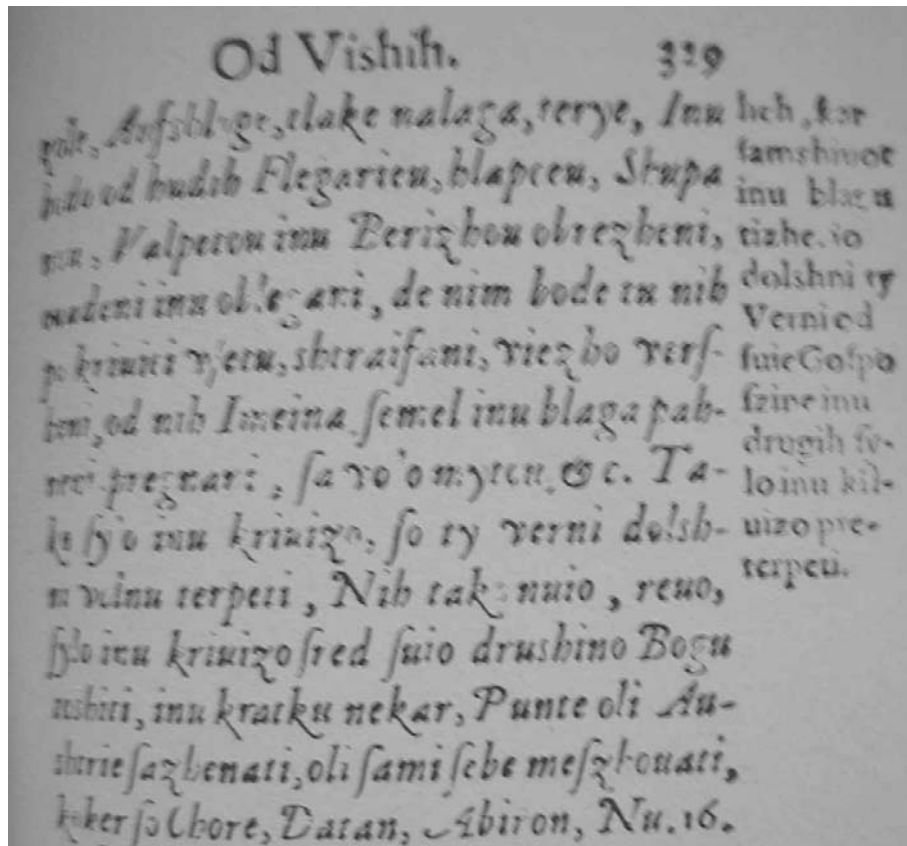 Od Vishih. 329
tlake nalaga, terye, Inu
od hudih Flegarieu, hlapceu, Shupa
Valpetou inu Berizhou obrezheni,
inu oblegani, de nim bode tu nih
po kriuici vſetu, shtraifani, viezho verſ-
beni, od nih Imeina ſemel inu blaga pah-
pregnani, ſa vo'o myttu, &c. Ta-
ke ſylo inu kriuizo, ſo ty verni dolsh-
ni volnu terpeti, Nih tako nuio, reuo,
ſylo inu kriuizo ſred ſuio drushino Bogu
toshiti, inu kratku nekar, Punte oli Au-
shtrie ſazhenati, oli ſami ſebe meſzhouati,
koker ſo Chore, Datan, Abiron, Nu. 16.
heh, kar
ſamshivot
inu blagu
tizhe, ſo
dolshni ty
Verni od
ſuie Goſpo
ſzine inu
drugih ſy-
lo inu kri-
uizo pre-
terpeti.